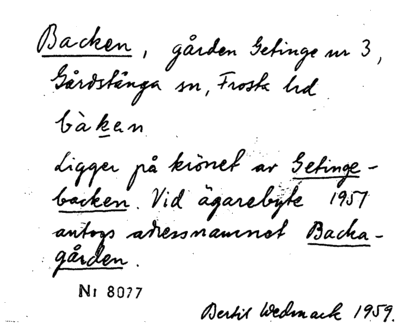 Backen, gården Getinge nr 3,
Gårdstånga sn, Frosta hd
bàken
Ligger på krönet av Getinge-
backen. Vid ägarebyte 1957
antogs adressnamnet Backa-
gården.
Nr 8077
Bertil Wedmark 1959.